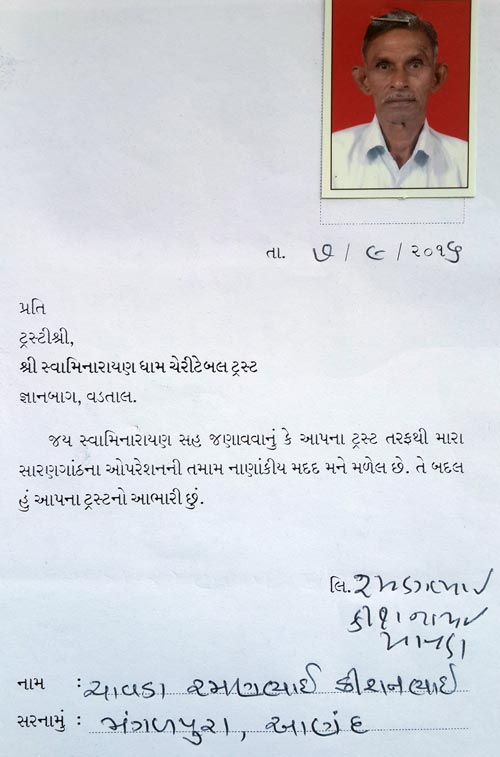 તા. ૭ / ૯ / ૨૦૧૬
પ્રતિ
ટ્રસ્ટીશ્રી,
શ્રી સ્વામિનારાયણ ધામ ચેરીટેબલ ટ્રસ્ટ
જ્ઞાનબાગ, વડતાલ.
જય સ્વામિનારાયણ સહ જણાવવાનું કે આપના ટ્રસ્ટ તરફથી મારા
સારણગાંઠના ઓપરેશનની તમામ નાણાંકીય મદદ મને મળેલ છે. તે બદલ
હું આપના ટ્રસ્ટનો આભારી છું.
લિ. રમણભાઈ
ચાવડા
નામ : ચાવડા રમણભાઈ કીશનભાઈ
સરનામું : મંગળપુરા, આણંદ